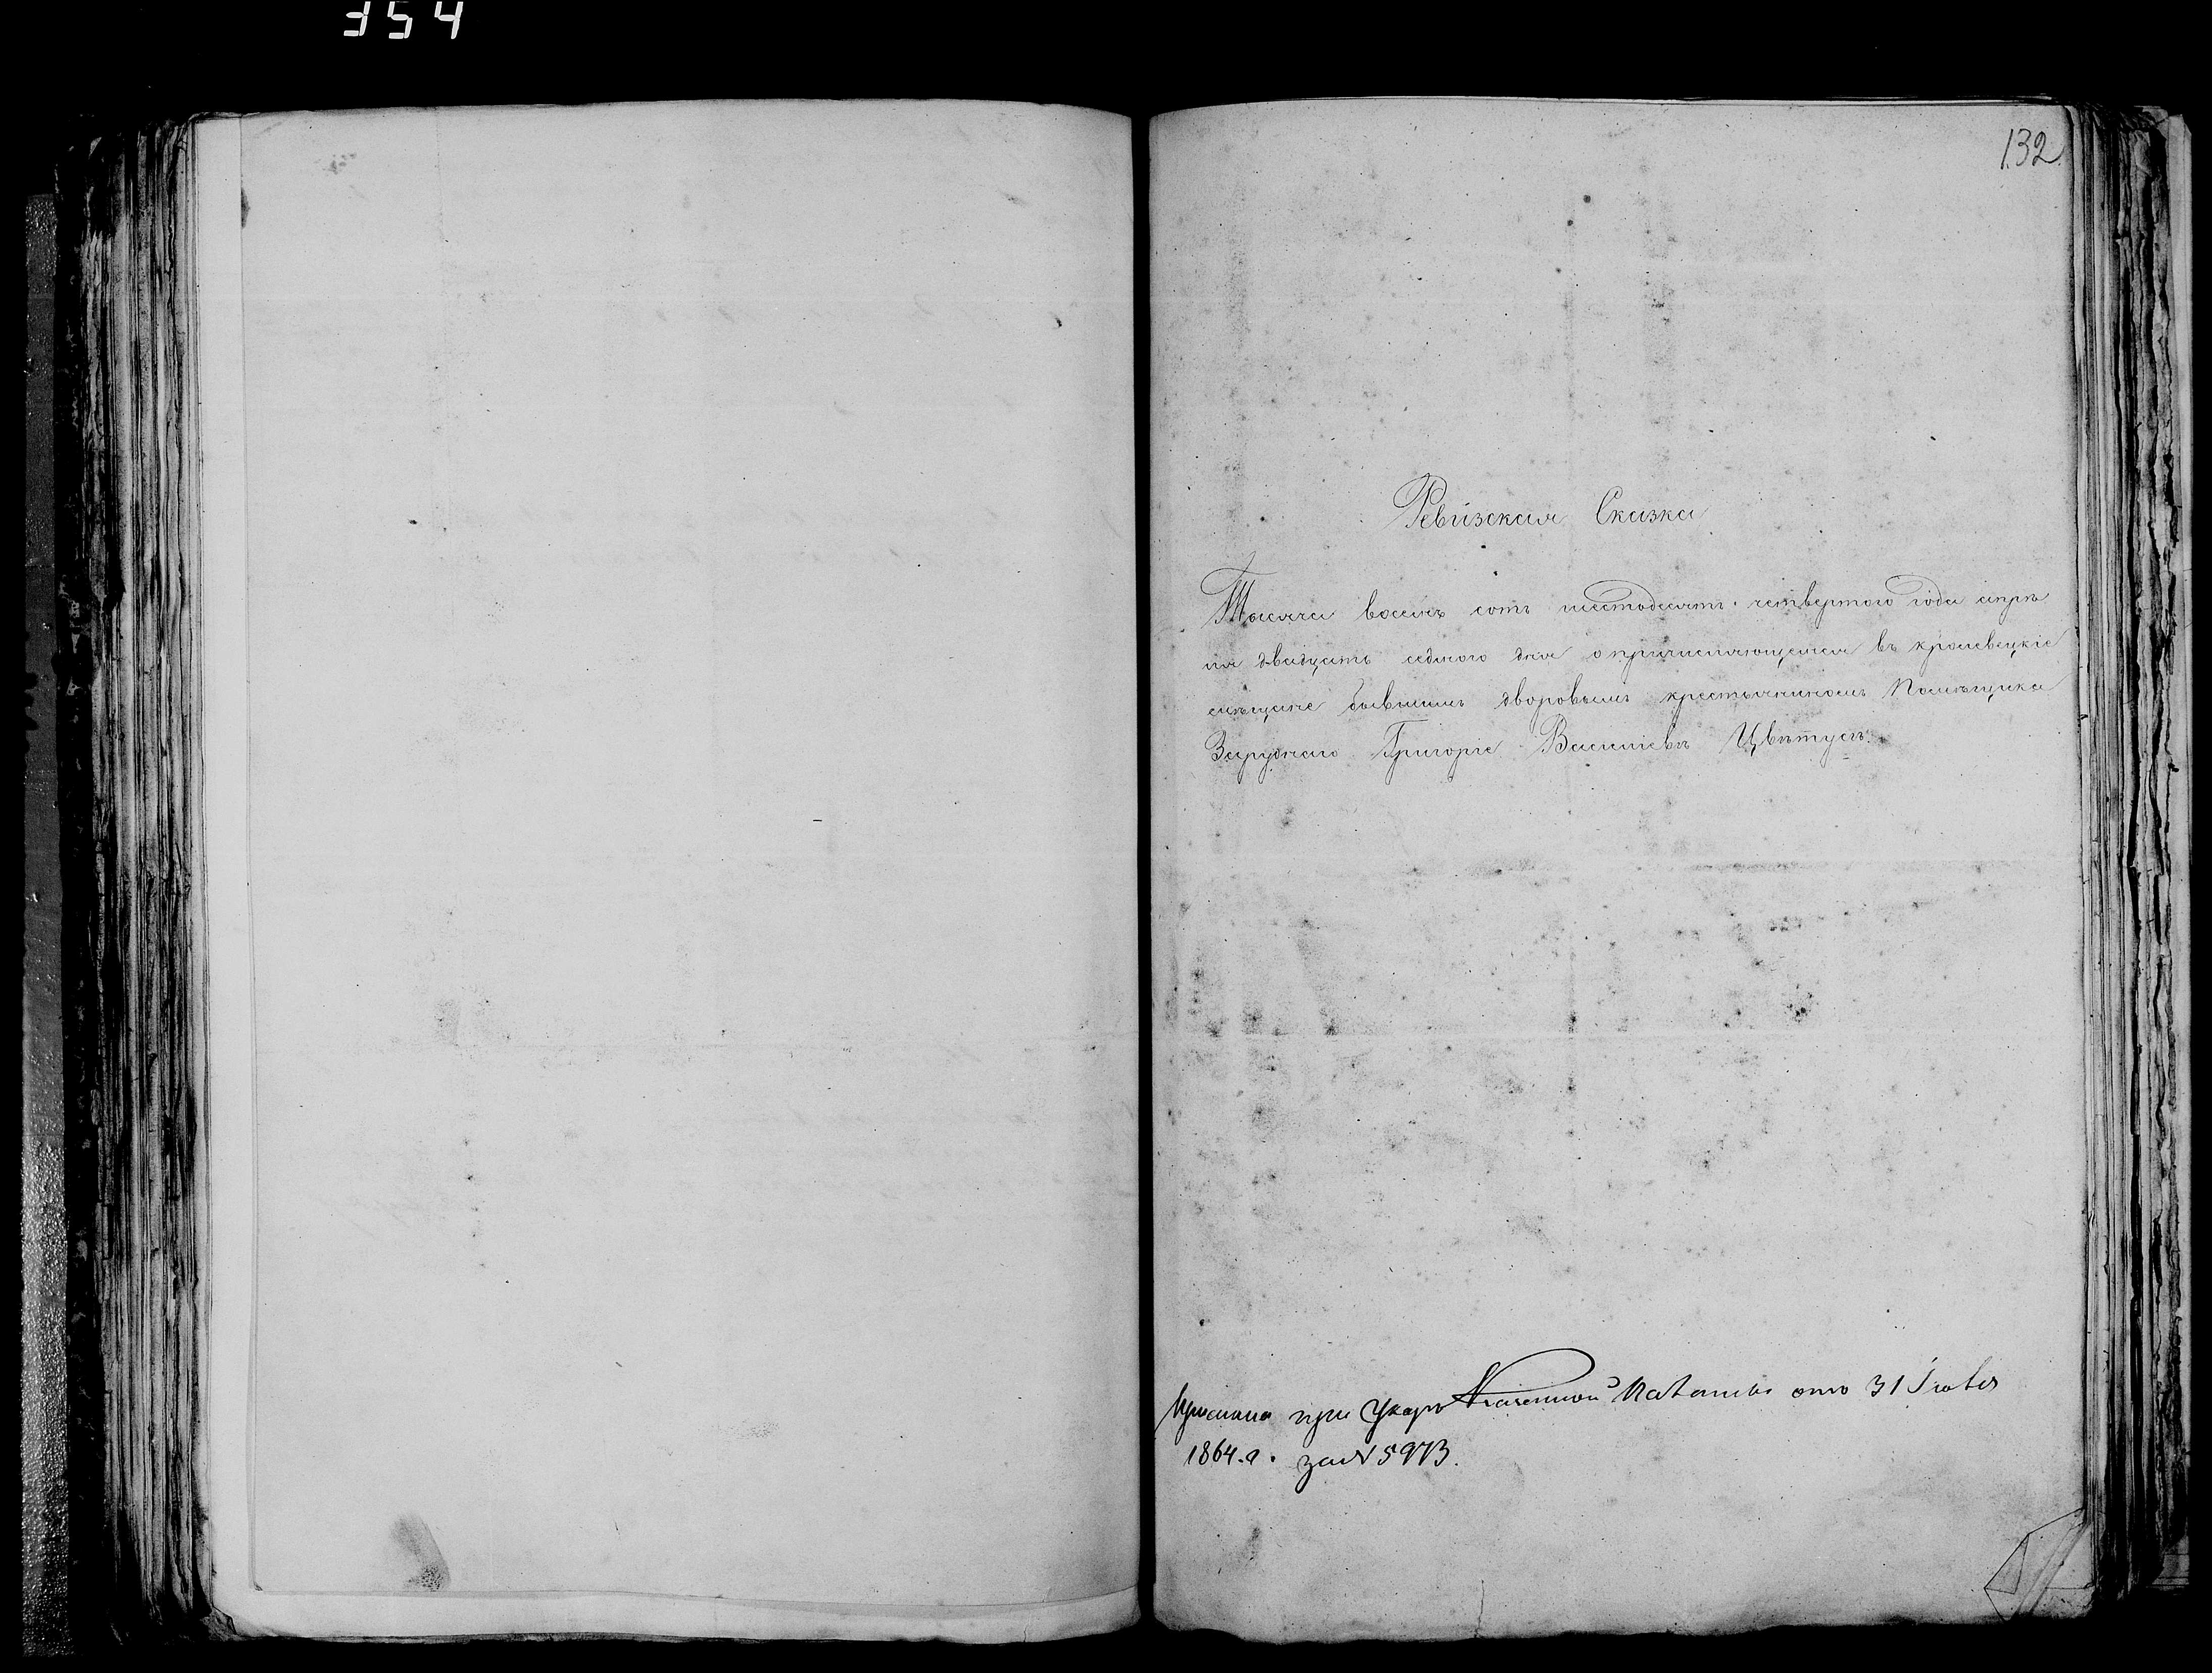 354
132
Ревизская Сказка
Тысяча восемь сотъ шестдесятъ четвертого года апрѣ
ля двадцать седмого дня о причисляющемся въ кролевецкіе
мѣщане бывшимъ дворовымъ крестьяниномъ Помѣщика
Зарудного Григоріе Васильевѣ Цвѣтусъ.
Прислана при Указѣ Казенной Палаты отъ 31 Іюля
1864.г. за N 5973.